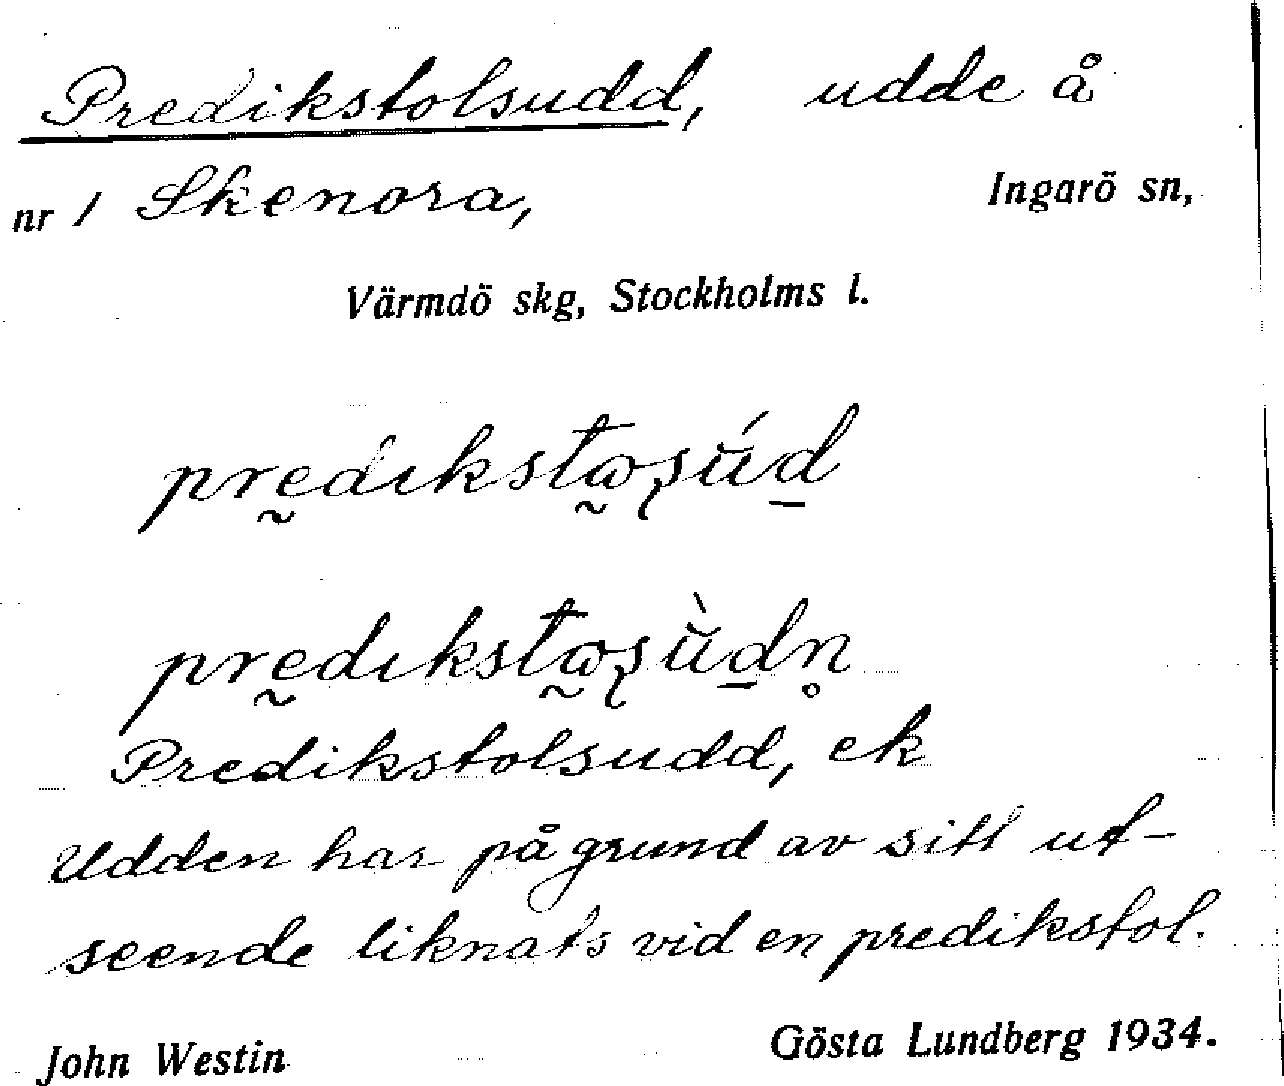 Predikstolsudd, udde å
nr 1 Skenora, Ingarö sn,
Värmdö skg, Stockholms l.
Predikstolsudd, ek
Udden har på grund av sitt ut-
seende liknats vid en predikstol.
John Westin Gösta Lundberg 1934.